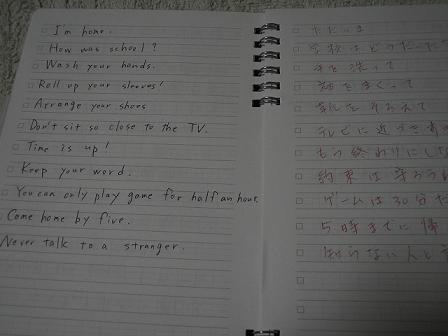 I'm home.
How was school?
Wash your hands.
Roll up your sleeves!
Arrange your shoes
Don't sit so close to the TV.
Time is up!
Keep your word.
You can only play game for half an hour.
Come home by five.
Never talk to a stranger.
ただいま
学校はどうだった
手を洗って
袖をまくって
靴をそろえて
テレビに近づき
もう終わりにし
約束は守
ゲームは30分
5時までに帰
知らない人と